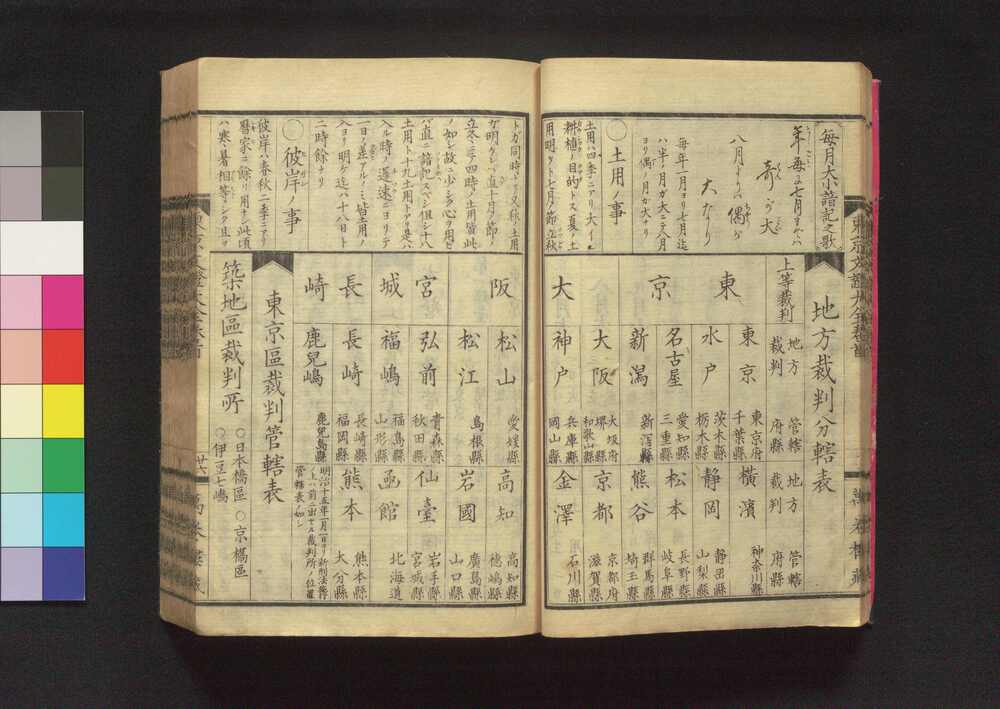 毎月大小諳記之歌
年毎に七月までハ
奇が大
八月よりハ偶が
大なり
毎年一月ヨリ七月迄
ハ半ノ月ガ大ニテ八月
ヨリ偶ノ月ガ大ナリ
○土用ノ事
土用ハ四季ニアリ大イニ
耕植ノ目的トス夏ノ土
用明ケト七月ノ節立秋
トガ同時ナリ又秋ノ土用
ガ明ケレバ直十月ノ節ノ
立冬ニテ四時ノ土用皆此
ノ如シ故ニ少シク心ヲ用レ
バ直ニ諳記スベシ但シ十八
土用ト十九土用トアリ是ハ
入ル時ノ遅速ニヨリテ
一日ノ差アルノミ皆土用ノ
入ヨリ明ケ迄ハ十八日ト
二時餘ナリ
○彼岸ノ事
彼岸ハ春秋二季ニアリ
暦家ニ餘リ用ナシ此頃
ハ寒暑相等シク且ツ
地方裁判分轄表
上等裁判
地方裁判 管轄府縣 地方裁判 管轄府縣
東京
東京 東京府 千葉縣 橫濱 神奈川縣
水戸 茨木縣 栃木縣 靜岡 靜岡縣 山梨縣
名古屋 愛知縣 三重縣 松本 長野縣 岐阜縣
新潟 新潟縣 熊谷 群馬縣 埼玉縣
大阪
大阪 大坂府 堺縣 和歌山縣 京都 京都府 滋賀縣
神戸 兵庫縣 岡山縣 金澤 石川縣
松山 愛媛縣 高知 高知縣 德嶋縣
松江 島根縣 岩國 廣島縣 山口縣
宮城
弘前 青森縣 秋田縣 仙臺 岩手縣 宮城縣
福嶋 福島縣 山形縣 函館 北海道
長崎
長崎 長崎縣 福岡縣 熊本 熊本縣 大分縣
鹿兒嶋 鹿兒島縣
東京區裁判管轄表
築地區裁判所 ○日本橋區 ○京橋區
○伊豆七嶋
廿六